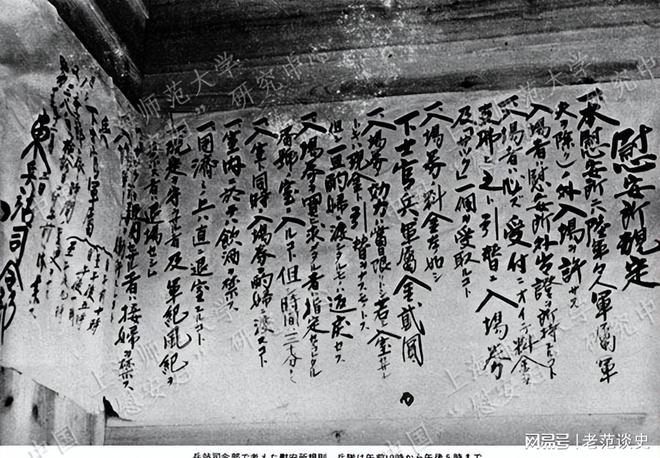 慰安所規定
一、本慰安所ニハ陸軍々人軍属軍
夫ヲ除クノ外入場ヲ許サス
入場者ハ慰安所外出證ヲ所持スルコト
一、入場者ハ必ス受付ニオイテ料金ヲ
支拂ヒ之ト引替ニ入場券
及「サック」一個ヲ受取ルコト
一、入場券ノ料金左ノ如シ
下士官兵軍属金貳圓
一、入場券ノ効力ハ當日限トシ若シ入室セサル
トキハ現金ト引替ヲナスモノトス
但シ一旦酌婦ニ渡シタルモノハ返戻セス
一、入場券ヲ買求メタル者ハ指定セラレタル
番號ノ室ニ入ルコト但シ時間ハ三十分トス
一、入室ト同時ニ入場券ヲ酌婦ニ渡スコト
一、室内ニ於テハ飲酒ヲ禁ス
一、用済ミノ上ハ直ニ退室スルコト
一、規定ヲ守ラサル者及軍紀風紀ヲ
紊ス者ハ退場セシム
一、サックヲ使用セサル者ハ接婦ヲ禁ス
東兵站司令部
兵站司令部で考えた慰安所規則。兵隊は午前10時から午後5時まで
上海师范大学
中国“慰安妇”研究中心
网易号 | 老范谈史